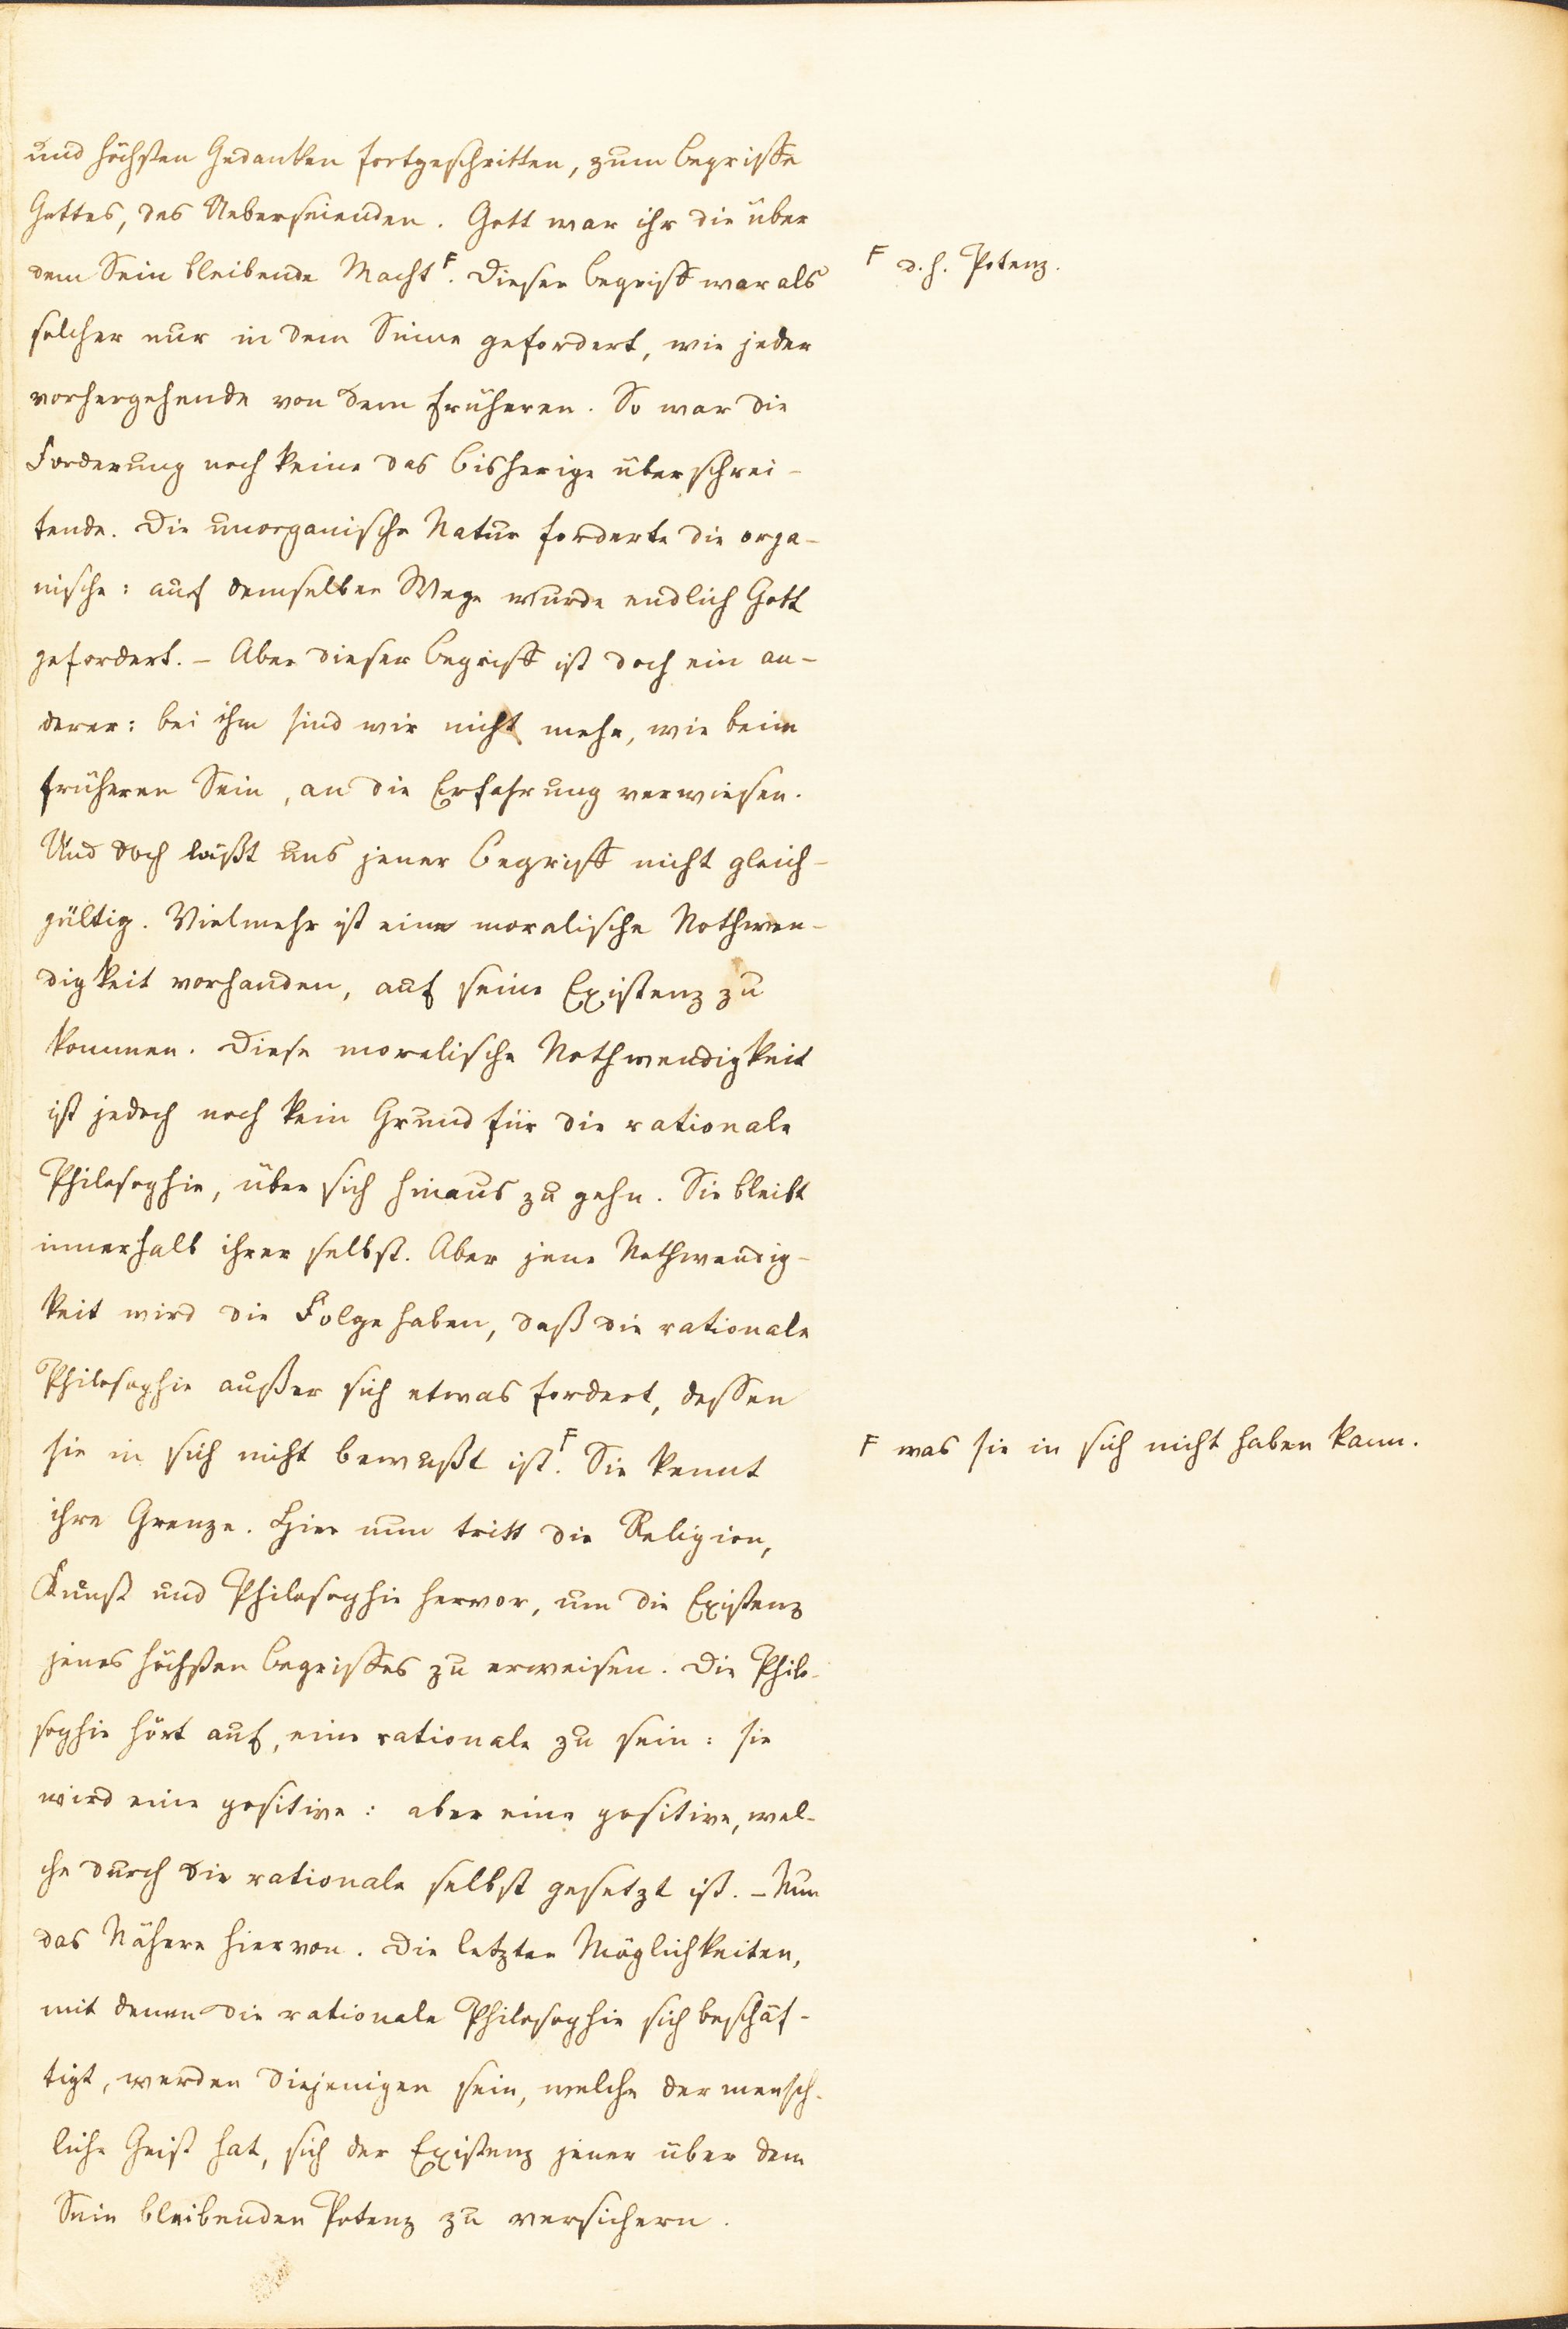 und höchsten Gedanken fortgeschritten, zum Begriffe
Gottes, des Ueberseienden. Gott war ihr die über
dem Sein bleibende Macht F. Dieser Begriff war als
F d. h. Potenz.
solcher nur in dem Sinne gefordert, wie jeder
vorhergehende von dem früheren. So war die
Forderung noch keine das bisherige überschrei-
tende. Die unorganische Natur forderte die orga-
nische: auf demselben Wege wurde endlich Gott
gefordert. – Aber dieser Begriff ist doch ein an-
derer: bei ihm sind wir nicht mehr, wie beim
früheren Sein, an die Erfahrung verwiesen.
Und doch läßt uns jener Begriff nicht gleich-
gültig. Vielmehr ist eine moralische Nothwen-
digkeit vorhanden, auf seine Existenz zu
kommen. Diese moralische Nothwendigkeit
ist jedoch noch kein Grund für die rationale
Philosophie, über sich hinaus zu gehn. Sie bleibt
innerhalb ihrer selbst. Aber jene Nothwendig-
keit wird die Folge haben, daß die rationale
Philosophie außer sich etwas fordert, dessen
sie in sich nicht bewußt ist F. Sie kennt
F was sie in sich nicht haben kann.
ihre Grenze. Hier nun tritt die Religion,
Kunst und Philosophie hervor, um die Existenz
jenes höchsten Begriffes zu erweisen. Die Philo-
sophie hört auf, eine rationale zu sein: sie
wird eine positive: aber eine positive, wel-
che durch die rationale selbst gesetzt ist. – Nun
das Nähere hiervon. Die letzten Möglichkeiten,
mit denen die rationale Philosophie sich beschäf-
tigt, werden diejenigen sein, welche der mensch-
liche Geist hat, sich der Existenz jener über dem
Sein bleibenden Potenz zu versichern.